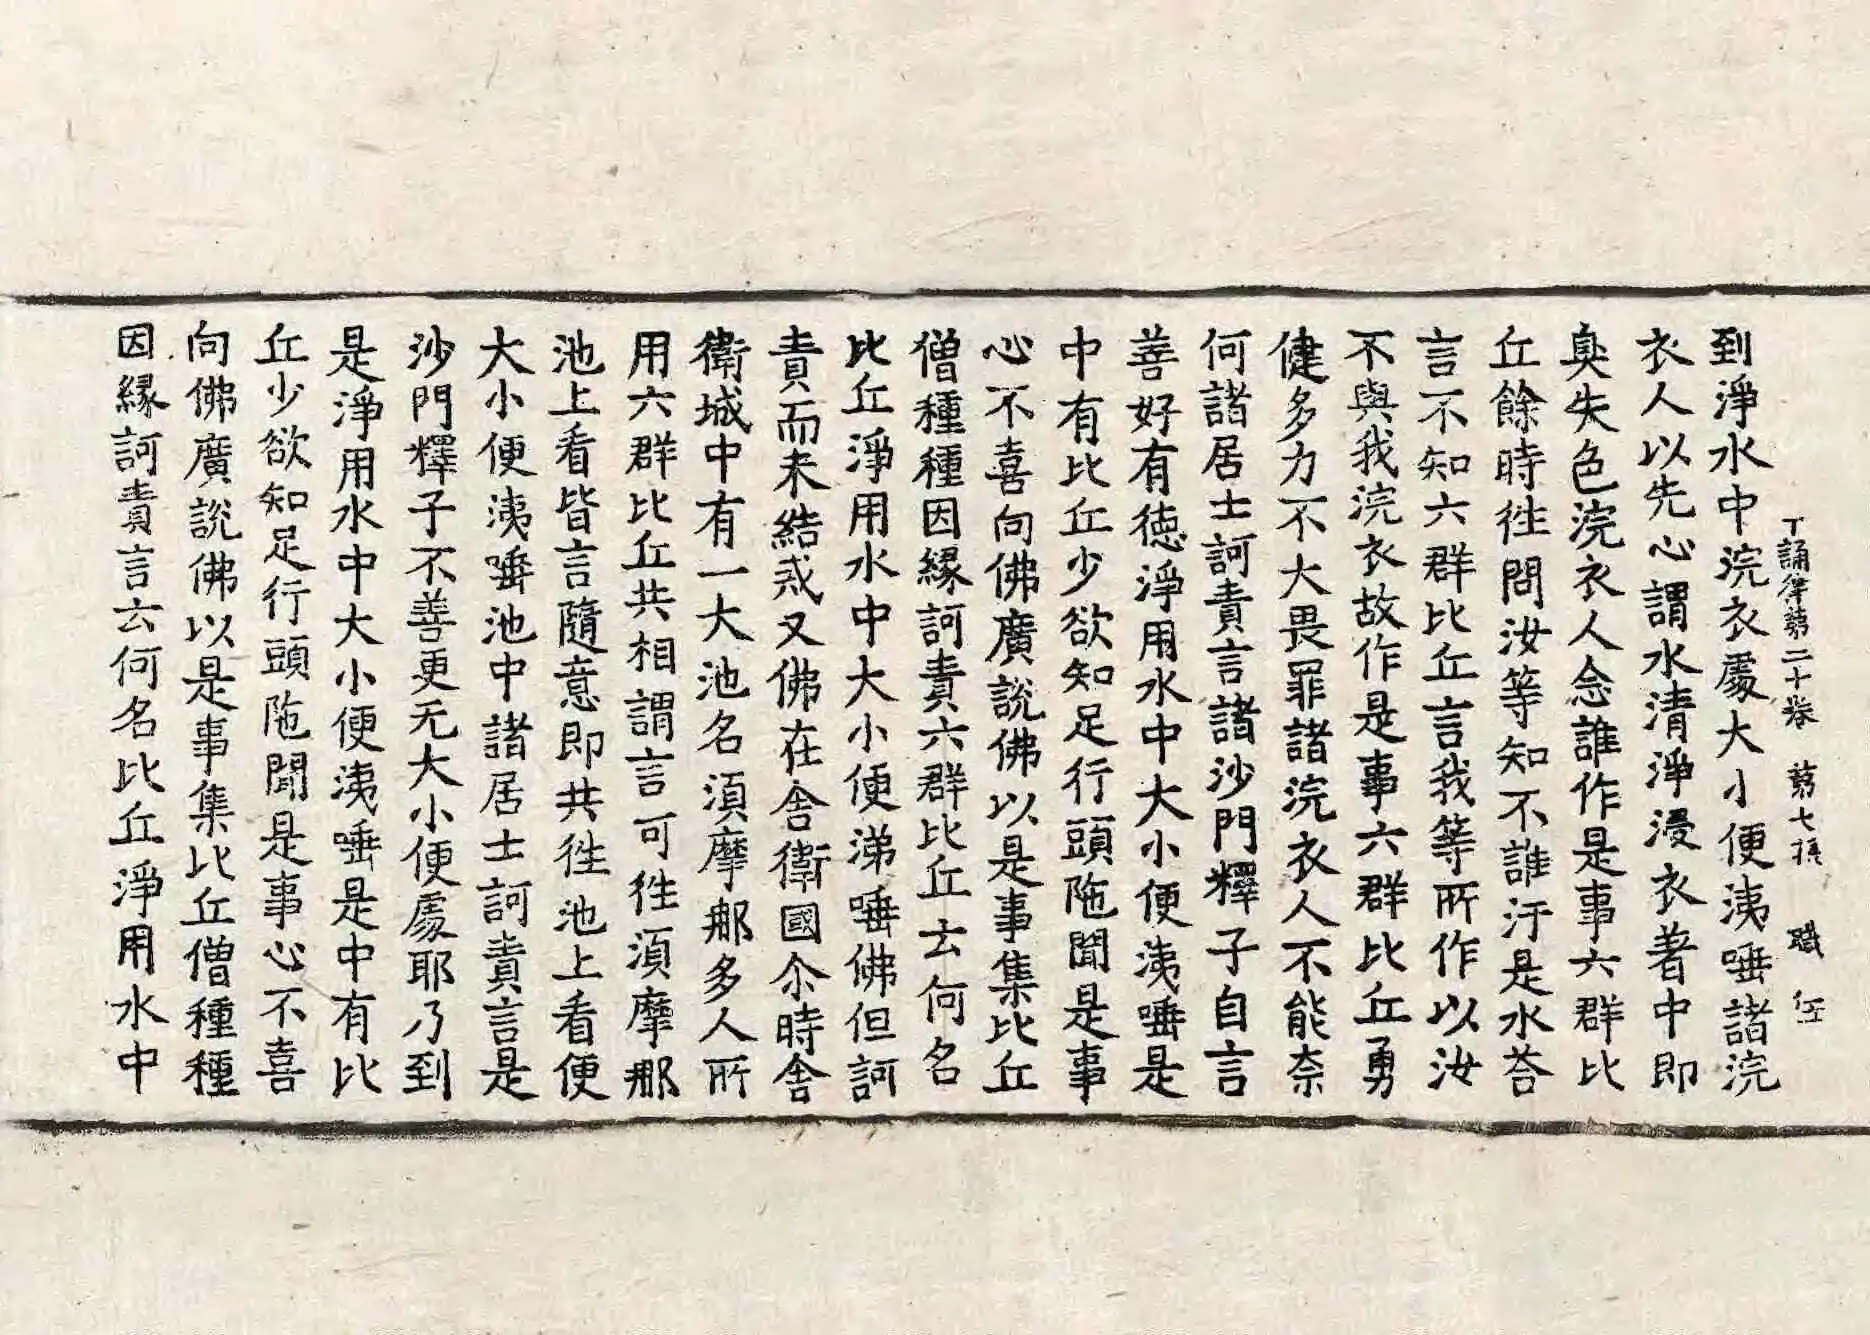 到淨水中浣衣處大小便洟唾諸浣
十誦律第二十卷 第七張 職 仁
衣人以先心謂水清淨浸衣著中即
臭失色浣衣人念誰作是事六群比
丘餘時徃問汝等知不誰汙是水荅
言不知六群比丘言我等所作以汝
不與我浣衣故作是事六群比丘勇
健多力不大畏罪諸浣衣人不能柰
何諸居士訶責言諸沙門釋子自言
善好有徳淨用水中大小便洟唾是
中有比丘少欲知足行頭陁聞是事
心不喜向佛廣說佛以是事集比丘
僧種種因緣訶責六群比丘云何名
比丘淨用水中大小便涕唾佛但訶
責而未結戒又佛在舍衛國尒時舍
衛城中有一大池名湏摩那多人所
用六群比丘共相謂言可徃湏摩那
池上看皆言隨意即共徃池上看便
大小便洟唾池中諸居士訶責言是
沙門釋子不善更无大小便處耶乃到
是淨用水中大小便洟唾是中有比
丘少欲知足行頭陁聞是事心不喜
向佛廣說佛以是事集比丘僧種種
因緣訶責言云何名比丘淨用水中